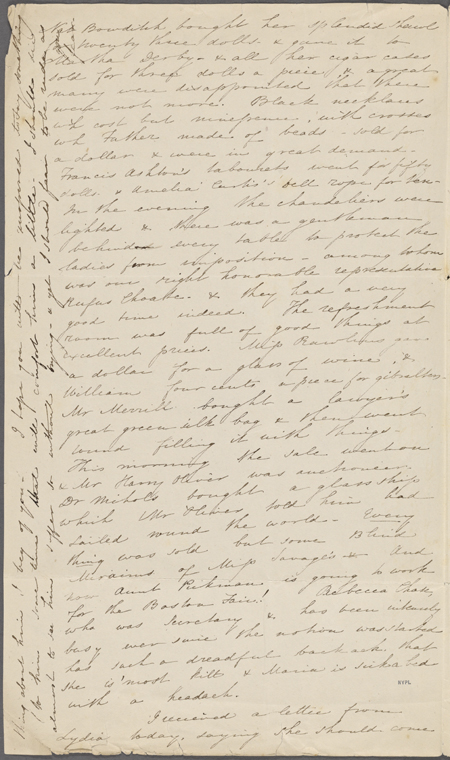 Nat Bowditch bought her splendid shawl
for twenty three dolls. & gave it to
Derby - & all her cigar cases
sold for three dolls a piece, & a great
many were disappointed that there
were not more. Black necklaces
wh cost but ninepence, with crosses
wh Father made of beads - sold for
a dollar & were in great demand -
Francis Ashton's tabourets went for fifty
dolls. & Amelia Curtis's bell rope for ten -
In the evening the chandeliers were
lighted & there was a gentleman
behind every table to protect the
ladies from imposition - among whom
was our right honourable representative
Rufus Choate. & they had a very
good time indeed. The refreshment
room was full of good things at
excellent prices. Miss Rawlins gave
a dollar for a glass of wine, &
William four cents a piece for gibraltars.
Mr Merrill bought a lawyer's
great green silk bag & then went
round filling it with things -
This morning the sale went on
& Mr Harry Oliver was auctioneer.
Dr Nichols bought a glass ship
which Mr Oliver told him had
sailed round the world - Every
thing was sold but some Blind
of Miss Savage's & And
now Aunt Pickman is going to work
for the Boston Fair! Rebecca
who was Secretary & has been intensely
busy ever since the notion was started
has such a dreadful back ache that
she is 'most kill & Maria is
with a headach.
I received a letter from
Lydia today, saying she should come
thing about him I beg of you - I hope you will
to him some time that will comfort him a little - I should
almost to see him suffer so without trying - & yet I should fear to be
NYPL